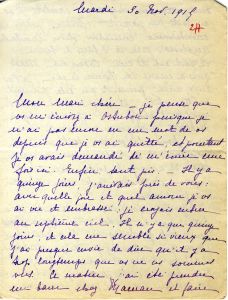 Mardi 30 Nov. 1915
Mon Mari chéri — je pense que
puisque je
n'ai pas encore eu un mot de vous
depuis que je vous ai quitté, et pourtant
je vous avais demandé de m'écrire une
fois ici. Enfin tant pis. — Il y a
quinze jours, j'arrivais près de vous;
avec quelle joie et quel amour je vous
ai vu et embrassé. Je croyais entrer
au septième ciel. Et il n'y a que quinze
jours, et cela me semble si vieux que
j'ai presque envie de dire qu'il y a
longtemps que nous ne nous sommes
vus. Ce matin, j'ai été prendre
un bain chez Maman et faire